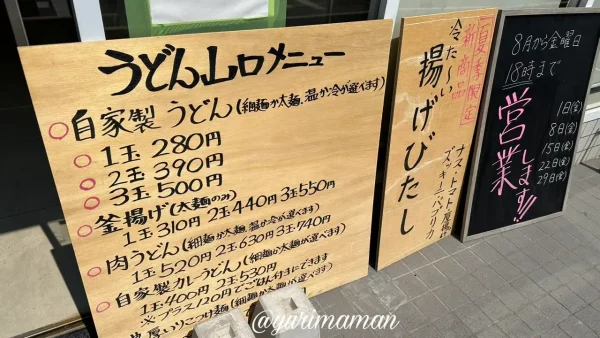 うどん山口メニュー
○自家製うどん(細麺か太麺、温か冷が選べます)
○1玉 280円
○2玉 390円
○3玉 500円
○釜揚げ(太麺のみ)
1玉310円 2玉440円 3玉550円
○肉うどん(細麺か太麺、温か冷が選べます)
1玉520円 2玉630円 3玉740円
○自家製カレーうどん(細麺か太麺が選べます)
1玉400円 2玉530円
※プラス120円でごはん付きにできます
厚いりこつけ麺(細麺か太麺が選べます)
夏季限定
新商品
冷た〜い
揚げびたし
ナス・トマト・厚揚げ
ズッキーニ・パプリカ
8月から金曜日
18時まで
営業します!!
1日(金)
8日(金)
15日(金)
22日(金)
29日(金)
@yurimaman